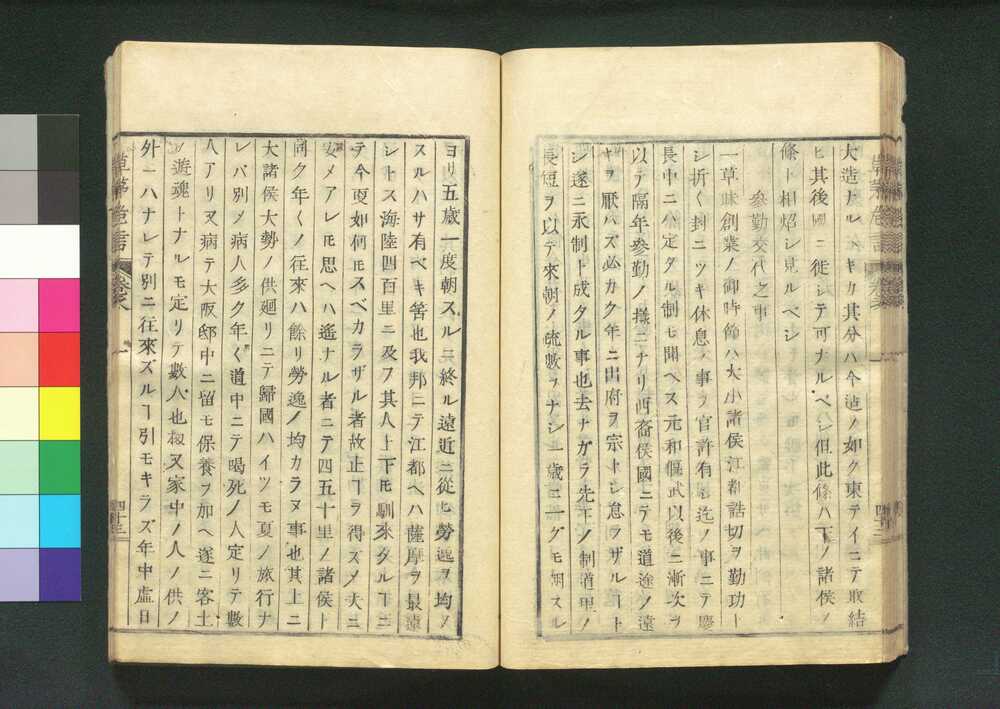 大造ナルベキカ其分ハ今迠ノ如ク東テイニテ取結
ヒ其後國ニ徙シテ可ナルベシ但此條ハ下ノ諸侯ノ
條ト相炤シ見ルベシ
參勤交代之事
一草昧創業ノ御時節ハ大小諸侯江都詰切ヲ勤功ト
シ折〱封ニツキ休息ノ事ヲ官許有シ迄ノ事ニテ慶
長中ニハ定タル制モ聞ヘス元和偃武以後ニ漸次ヲ
以テ隔年參勤ノ様ニナリ西裔侯國ニテモ道途ノ遠
キヲ厭ハズ必カク年ニ出府ヲ宗トシ怠ラザルヿト
シ遂ニ永制ト成タル事也去ナガラ先王ノ制道里ノ
長短ヲ以テ來朝ノ疏數ヲナシ一歳ニ一グモ朝スル
ヨリ五歳一度朝スルニ終ル遠近ニ從ヒ勞逸ヲ均ノ
スルハサ有ベキ筈也我邦ニテ江都ヘハ薩摩ヲ最遠
シトス海陸四百里ニ及フ其人上下𪜈馴來タルヿニ
テ今更如何𪜈スベカラザル者故止ヿヲ得ズメ夫ニ
安メアレ𪜈思ヘハ遙ナル者ニテ四五十里ノ諸侯ト
同ク年〱ノ往來ハ餘リ勞逸ノ均カラヌ事也其上ニ
大諸侯大勢ノ供廻リニテ歸國ハイツモ夏ノ旅行ナ
レバ別メ病人多ク年〱道中ニテ暍死ノ人定リテ數
人アリ又病テ大阪邸中ニ留モ保養ヲ加ヘ遂ニ客土
ノ遊魂トナルモ定リテ數人也扨又家中ノ人ノ供ノ
外一ハナレテ別ニ往來ズルヿ引モキラズ年中虚日
四十三